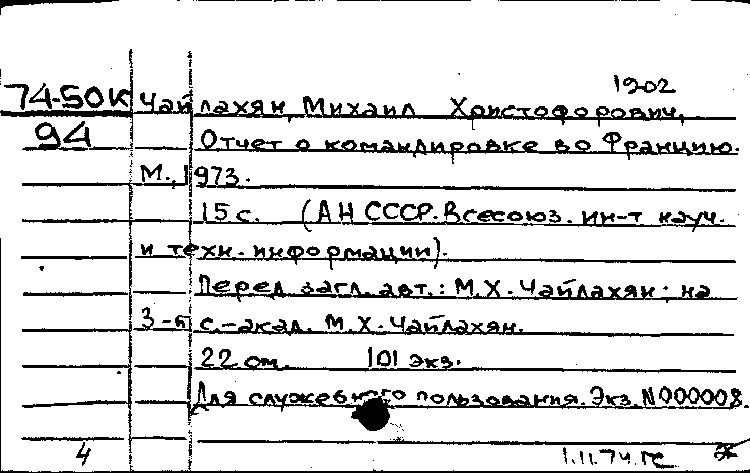 1902
74-50К Чайлахян, Михаил Христофорович,
94 Отчет о командировке во Францию.
М., 1973.
15 с. (АН СССР. Всесоюз. ин-т науч.
и техн. информации).
Перед загл. авт.: М.Х. Чайлахян; на
3-й с.-акад. М.Х. Чайлахян.
22 см. 101 экз.
Для служебного пользования. Экз. N000008.
4 1.11.74